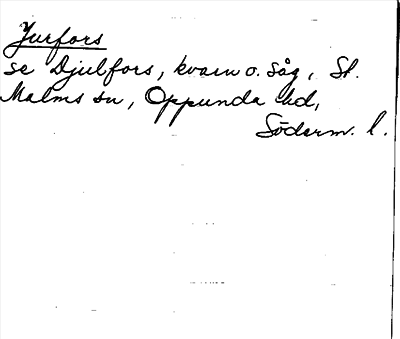 Jurfors
se Djulfors, kvarn o. såg, St.
Malms sn, Oppunda hd,
Söderm. l.